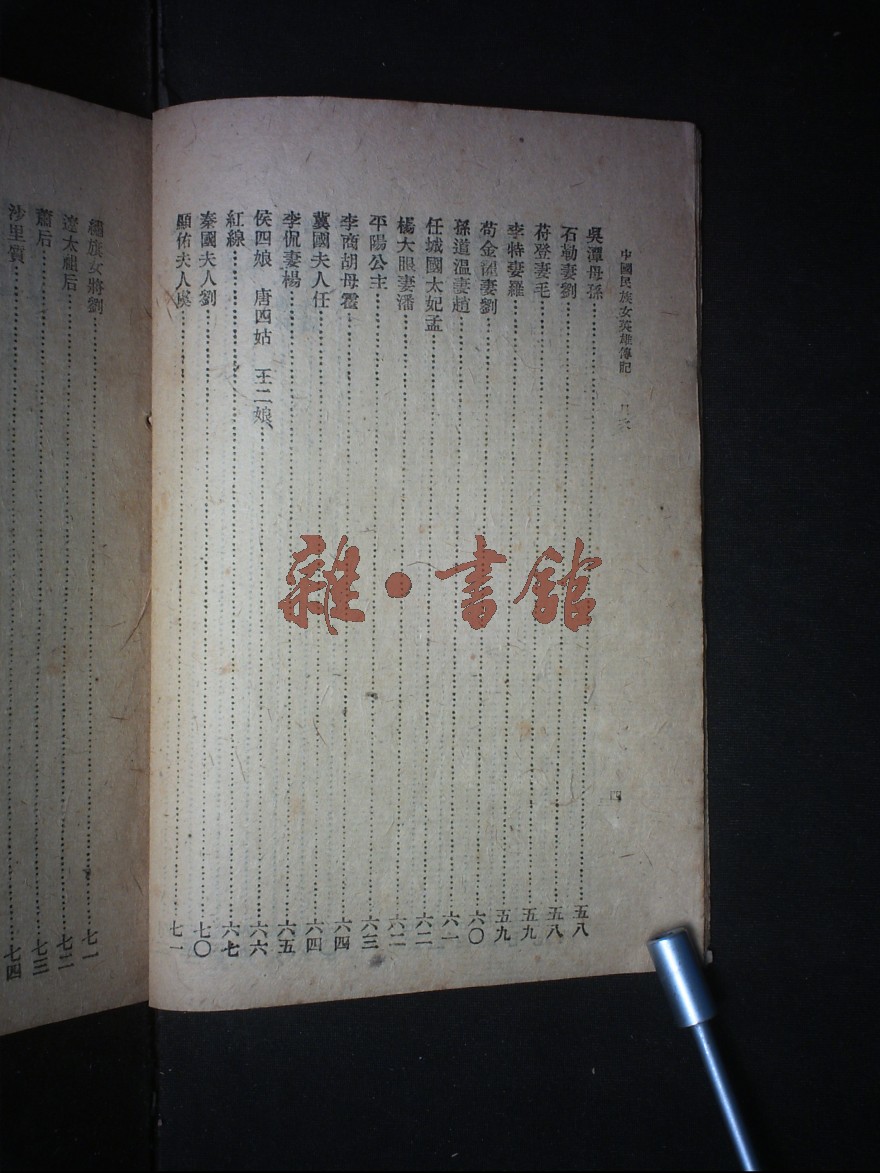 中國民族女英雄傳記 目次
四
吳潭母孫 五八
石勒妻劉 五八
苻登妻毛 五九
李特妻羅 五九
荀金龍妻劉 六〇
孫道溫妻趙 六一
任城國太妃孟 六二
楊大眼妻潘 六二
平陽公主 六三
李商胡母霍 六四
冀國夫人任 六四
李侃妻楊 六五
侯四娘 唐四姑 王二娘 六六
紅線 六七
秦國夫人劉 七〇
顯佑夫人吳 七一
繡旗女將劉 七一
遼太祖后 七二
蕭后 七三
沙里質 七四
雜·書館